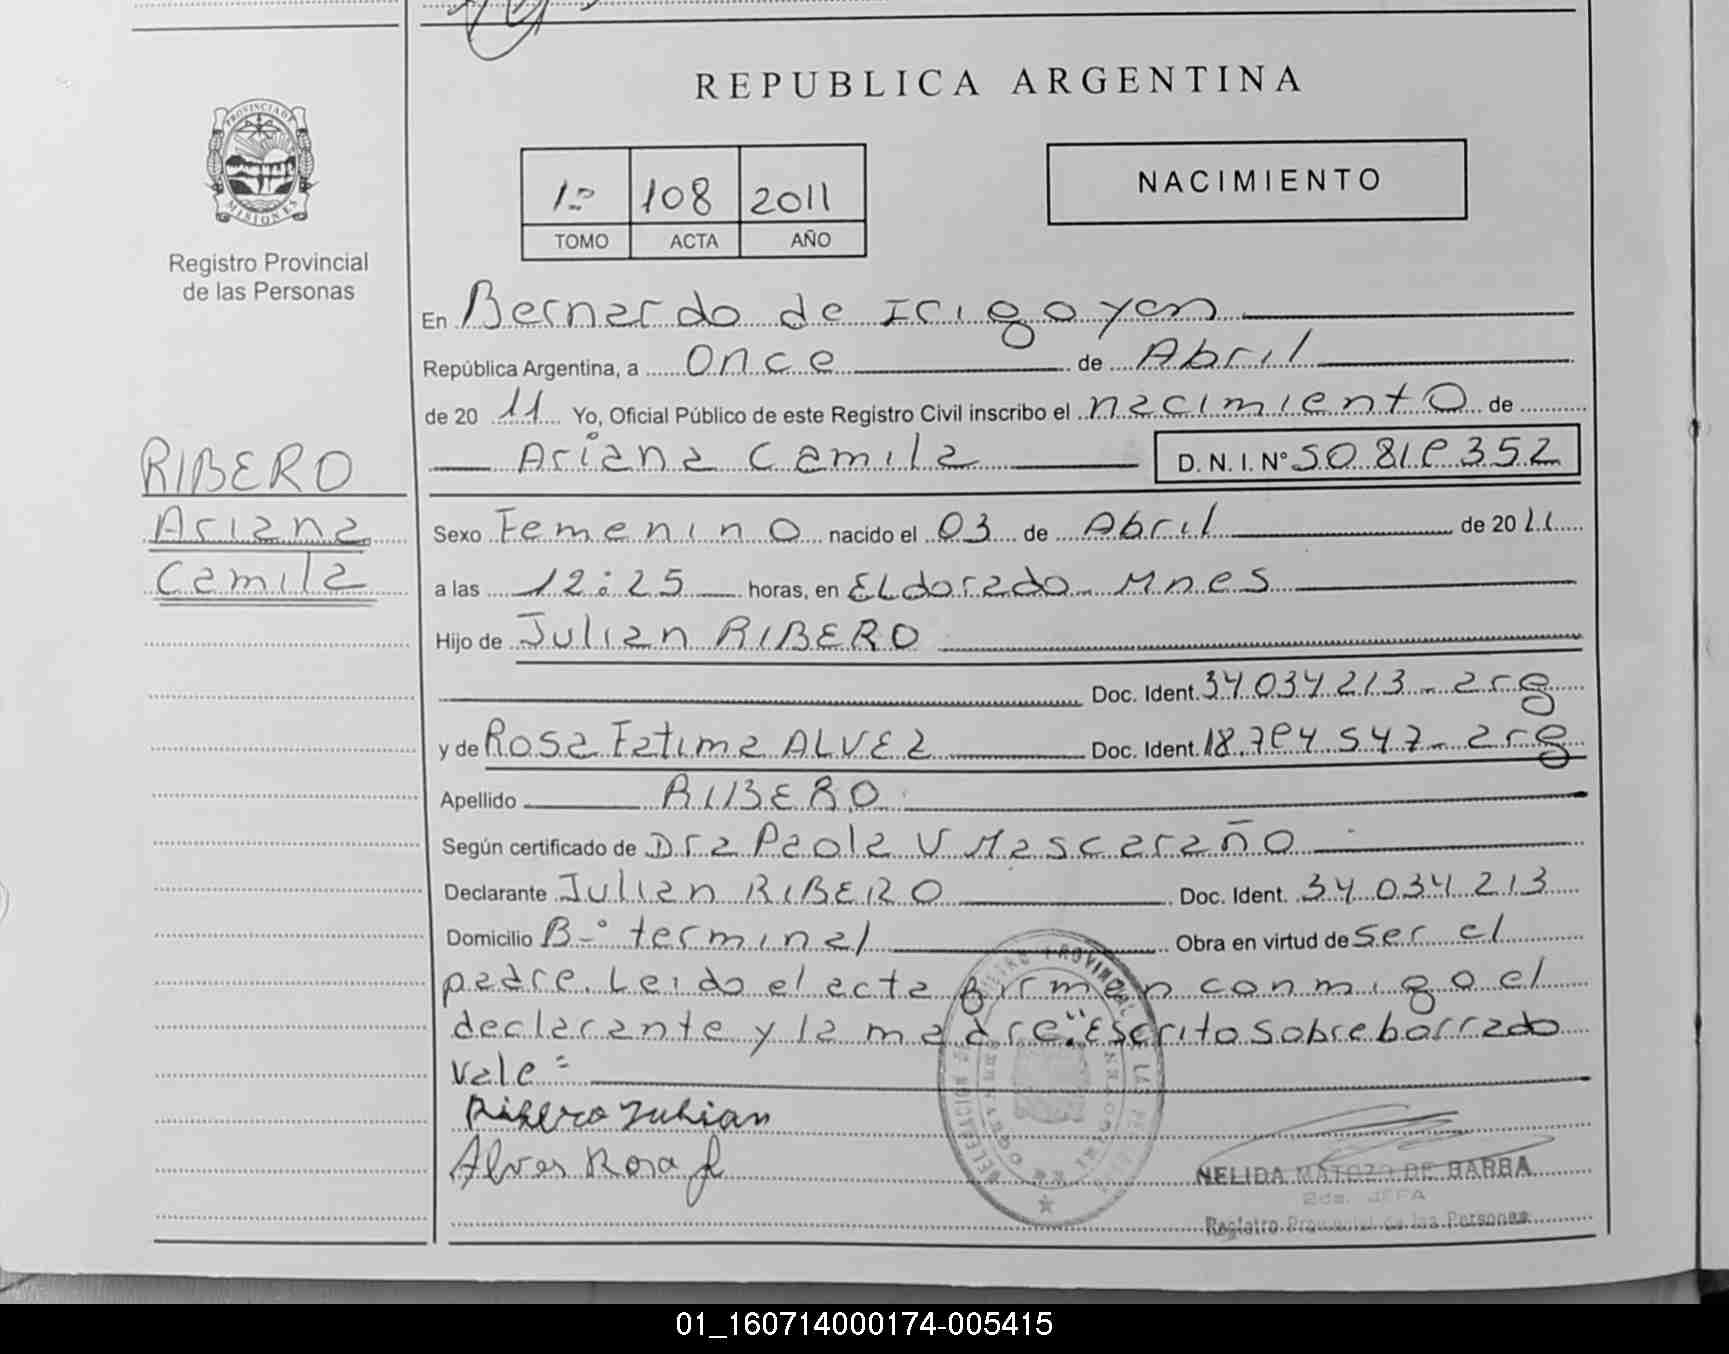 REPUBLICA ARGENTINA
PROVINCIA DE
MISIONES
Registro Provincial
de las Personas
1º 108 2011
TOMO ACTA AÑO
NACIMIENTO
En Bernardo de Irigoyen
República Argentina, a Once de Abril
de 20 11 Yo, Oficial Público de este Registro Civil inscribo el nacimiento de
Ariana Camila D. N. I. Nº
RIBERO
Ariana
Camila
Sexo Femenino nacido el 03 de Abril de 20 11
a las 12:25 horas, en Eldorado Mnes
Hijo de Julian RIBERO
Doc. Ident. 34 034 213 - arg
y de Rosa Fatima ALVEZ Doc. Ident. - arg
Apellido RIBERO
Según certificado de Dra Paola V Mascaraño
Declarante Julian RIBERO Doc. Ident. 34 034 213
Domicilio B-º terminal Obra en virtud de Ser el
padre. Leido el acta firman conmigo el
declarante y la madre. "Escrito sobre borrado
Vale =
Ribero Julian
Alves Rosa f
NELIDA MATOZO DE BARBA
2da. JEFA
Registro Provincial de las Personas
01_160714000174-005415